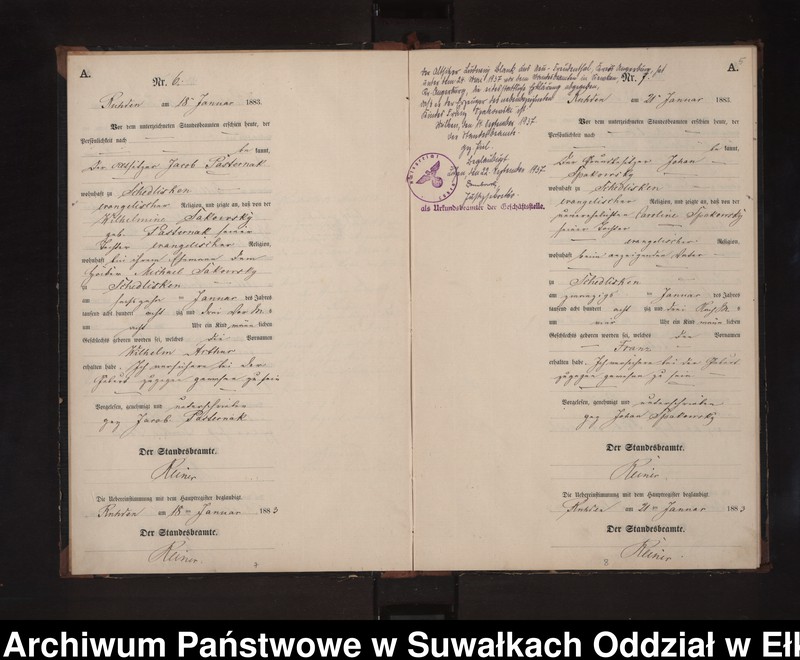 A.
Nr. 6.
Ruhden am 18 Januar 1883.
Vor dem unterzeichneten Standesbeamten erschien heute, der
Persönlichkeit nach
be kannt,
Der Altsitzer Jacob Pasternak
wohnhaft zu Schedlisken
evangelischer Religion, und zeigte an, daß von der
Wilhelmine Sakowsky
geb. Pasternak seiner
Tochter evangelischer Religion,
wohnhaft bei ihrem Ehemann dem
Michael Sakowsky
zu Schedlisken
am sechszehn ten Januar des Jahres
tausend acht hundert acht zig und drei Vor M.
um acht Uhr ein Kind männ lichen
Geschlechts geboren worden sei, welches die Vornamen
Wilhelm Arthur
erhalten habe. Ich versichere bei der
Geburt zugegen gewesen zu sein
Vorgelesen, genehmigt und unterschrieben
gez Jacob Pasternak
Der Standesbeamte.
Reiner
Die Uebereinstimmung mit dem Hauptregister beglaubigt.
Ruhden am 18ten Januar 1883
Der Standesbeamte.
Reiner.
A.
Der Altsitzer Ludwig Blank aus Neu-Freudenthal, Kreis Angerburg, hat
unter dem 24. Mai 1937 vor dem Standesbeamten in
Kr. Angerburg, die eidesstattliche Erklärung abgegeben,
daß er der Erzeuger des nebenbezeichneten
Kindes Spakowski ist.
den 14. September 1937.
Der Standesbeamte
gez.
Beglaubigt
den 22. September 1937.
Justizsekretär
als Urkundsbeamter der Geschäftsstelle.
Nr. 7.
Ruhden am 21 Januar 1883.
Vor dem unterzeichneten Standesbeamten erschien heute, der
Persönlichkeit nach
be kannt,
Der Grundbesitzer Johan
Spakowsky
wohnhaft zu Schedlisken
evangelischer Religion, und zeigte an, daß von der
unverehelichten Caroline Spakowsky
seiner Tochter
evangelischer Religion,
wohnhaft beim anzeigenden Vater
zu Schedlisken
am zwanzigs ten Januar des Jahres
tausend acht hundert acht zig und drei Nach M.
um vier Uhr ein Kind männ lichen
Geschlechts geboren worden sei, welches den Vornamen
Franz
erhalten habe. Ich versichere bei der Geburt
zugegen gewesen zu sein
Vorgelesen, genehmigt und unterschrieben
gez Johan Spakowsky
Der Standesbeamte.
Reiner.
Die Uebereinstimmung mit dem Hauptregister beglaubigt.
Ruhden am 21ten Januar 1883
Der Standesbeamte.
Reiner.
Archiwum Państwowe w Suwałkach Oddział w Ełk